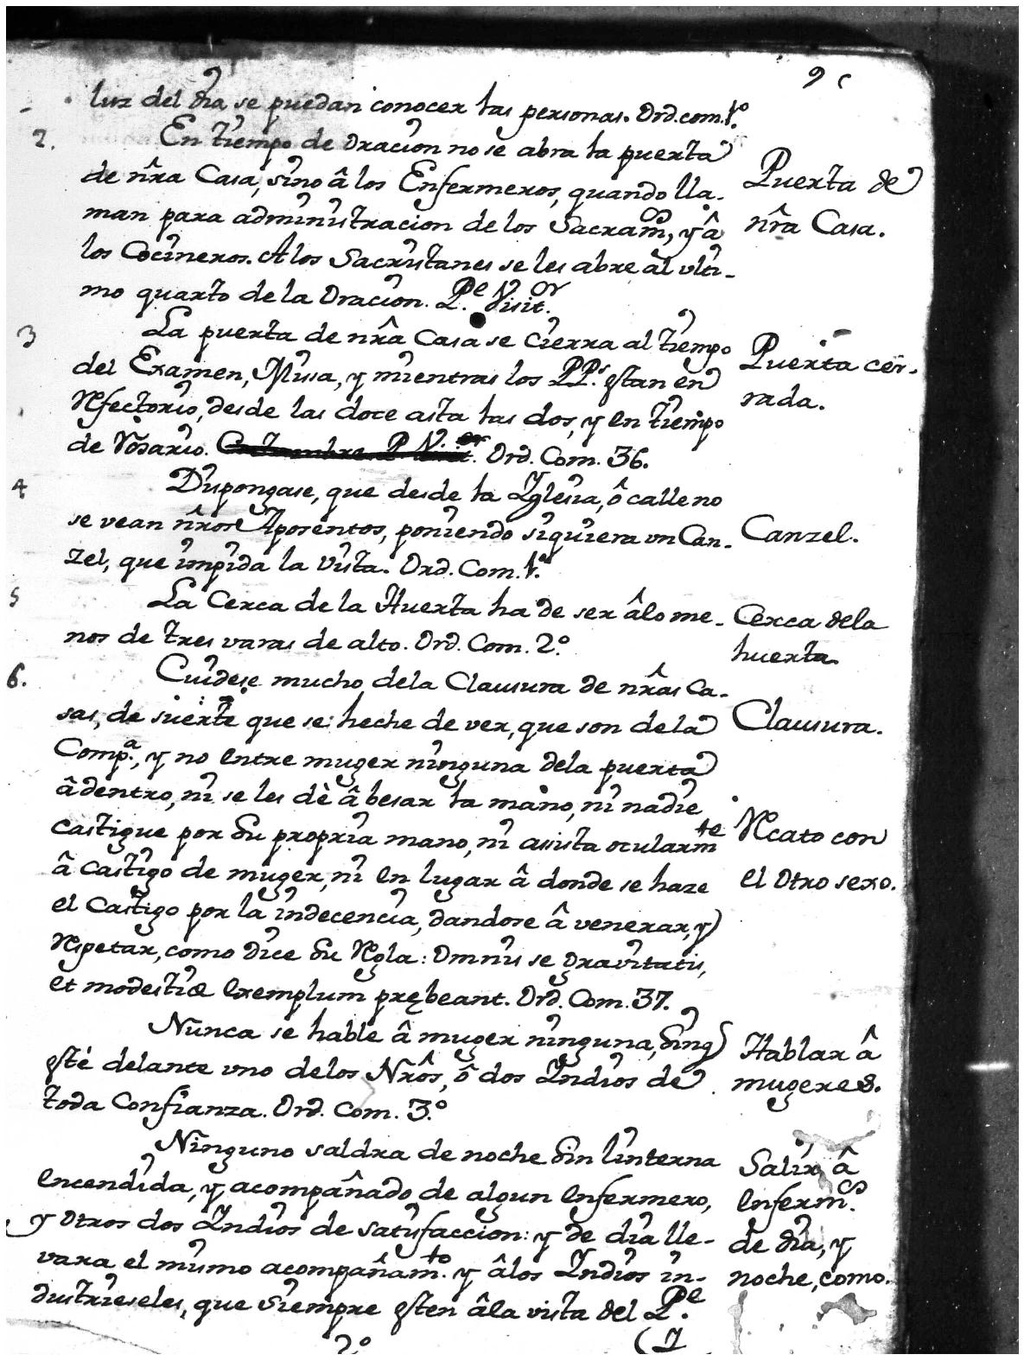 9
luz del dia se puedan conocer las personas. Ord. com. 1.º
2. En tiempo de Oracion no se abra la puerta
de nr̃a Casa, sino â los Enfermeros, quando lla-
man para administracion de los Sacram.os, y â
los Cocineros. A los Sacristanes se les abre al ulti-
mo quarto de la Oracion. P.e Visit.or
Puerta de
nr̃a Casa.
3 La puerta de nr̃a Casa se cierra al tiempo
del Examen, Missa, y mientras los PP.s estan en
Refectorio, desde las doce asta las dos, y en tiempo
de Rosario. Ord. Com. 36.
Puerta cer-
rada.
4 Dispongase, que desde la Iglesia, ô calle no
se vean nr̃os Aposentos, poniendo siquiera un Can-
zel, que impida la vista. Ord. Com. 1.ª
Canzel.
5 La Cerca de la Huerta ha de ser âlo me-
nos de tres varas de alto. Ord. Com. 2.º
Cerca dela
huerta.
6. Cuidese mucho dela Clausura de nr̃as Ca-
sas, de suerte que se heche de ver, que son de la
Comp.ª, y no entre muger ninguna dela puerta
âdentro, ni se les dè â besar la mano, ni nadie
castigue por su propria mano, ni assista ocularm.te
â castigo de muger, ni en lugar â donde se haze
el castigo por la indecencia, dandose â venerar, y
Respetar, como dice su Regla: Omnis se gravitatis,
et modestiæ exemplum prębeant. Ord. Com. 37.
Clausura.
Recato con
el otro sexo.
Nunca se hable â muger ninguna, sin q
esté delante uno delos Nr̃os, ô dos Indios de
toda Confianza. Ord. Com. 3.º
Hablar â
mugeres.
Ninguno saldra de noche sin linterna
encendida, y acompañado de algun enfermero,
y otros dos Indios de satisfaccion: y de dia lle-
vara el mismo acompañam.to y âlos Indios in-
dustrieseles, que siempre esten âla vista del P.e
Salir â
enferm.os
de dia, y
noche, como.
2.º